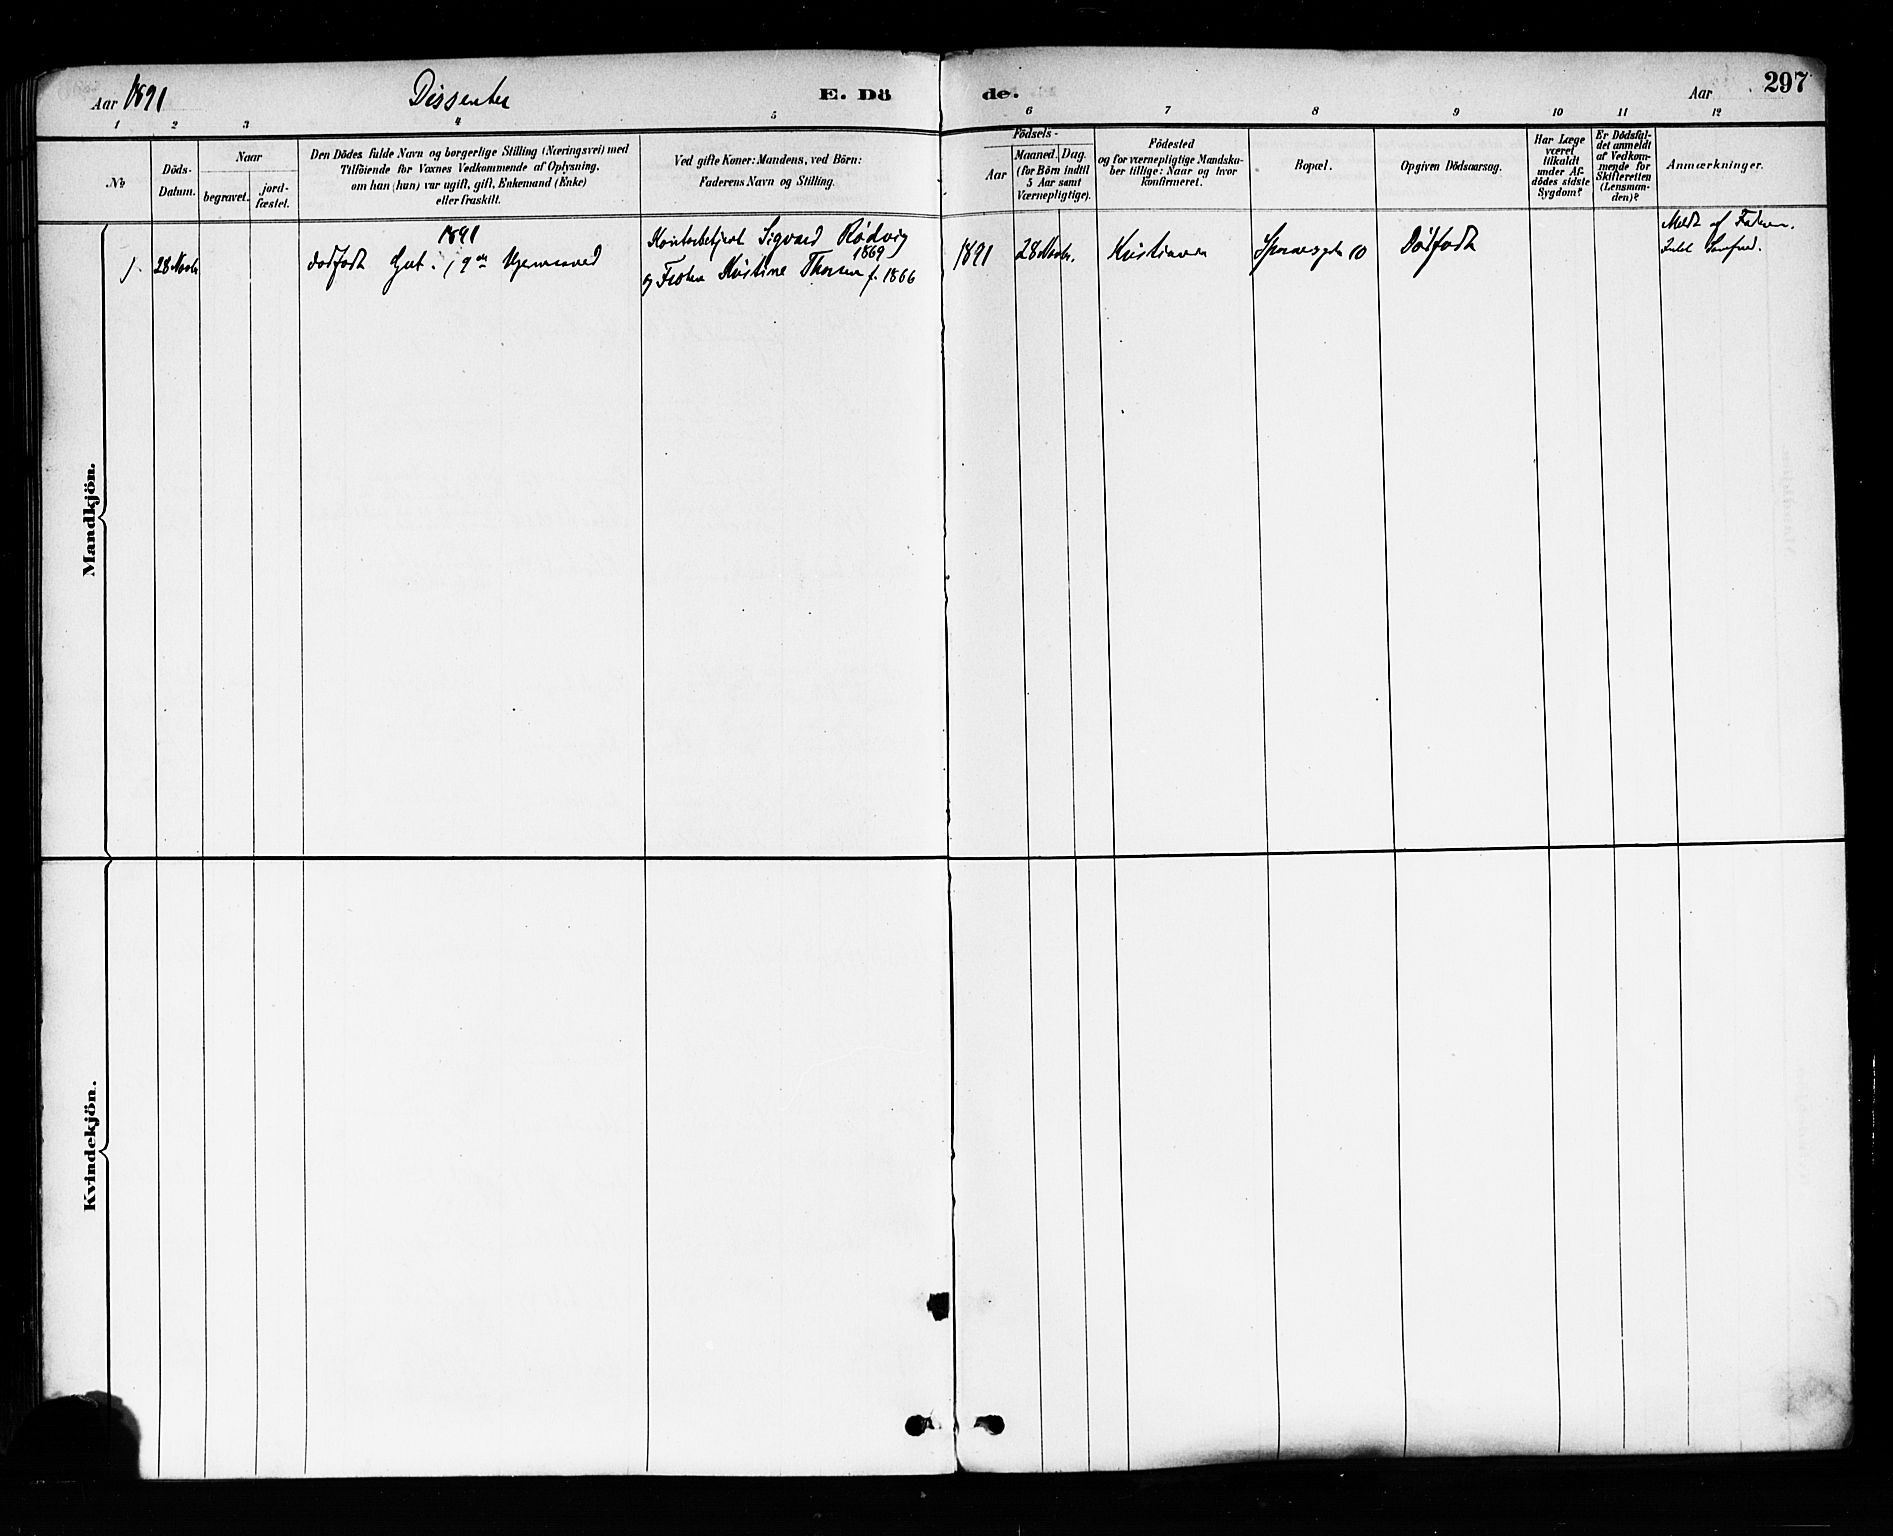 Aar 1891
Dissenter
E. Dö
de.
Aar
297
1 2 3 4 5 6 7 8 9 10 11 12
No
Döds-
Datum.
Naar
begravet.
jord-
fæstet.
Den Dödes fulde Navn og borgerlige Stilling (Næringsvei) med
Tilföiende for Voxnes Vedkommende af Oplysning,
om han (hun) var ugift, gift, Enkemand (Enke)
eller fraskilt.
Ved gifte Koner: Mandens, ved Börn:
Faderens Navn og Stilling.
Födsels-
Aar
Maaned. Dag.
(for Börn indtil
5 Aar samt
Værnepligtige).
Födested
og for værnepligtige Mandska-
ber tillige: Naar og hvor
konfirmeret.
Bopæl.
Opgiven Dödsaarsag.
Har Læge
været
tilkaldt
under Af-
dödes sidste
Sygdom?
Er Dödsfal-
det anmeldt
af Vedkom-
mende for
Skifteretten
(Lensman-
den)?
Anmærkninger.
Mandkjön.
1891
1.
28 Novbr
dødfødt Gut.
Kontorbetjent Sigvard Rödvig
1869
og Kristine Thorsen f. 1866
1891
28 Novbr.
Kristiania
10
Dödfödt
Meldt af Faderen.
Kvindekjön.